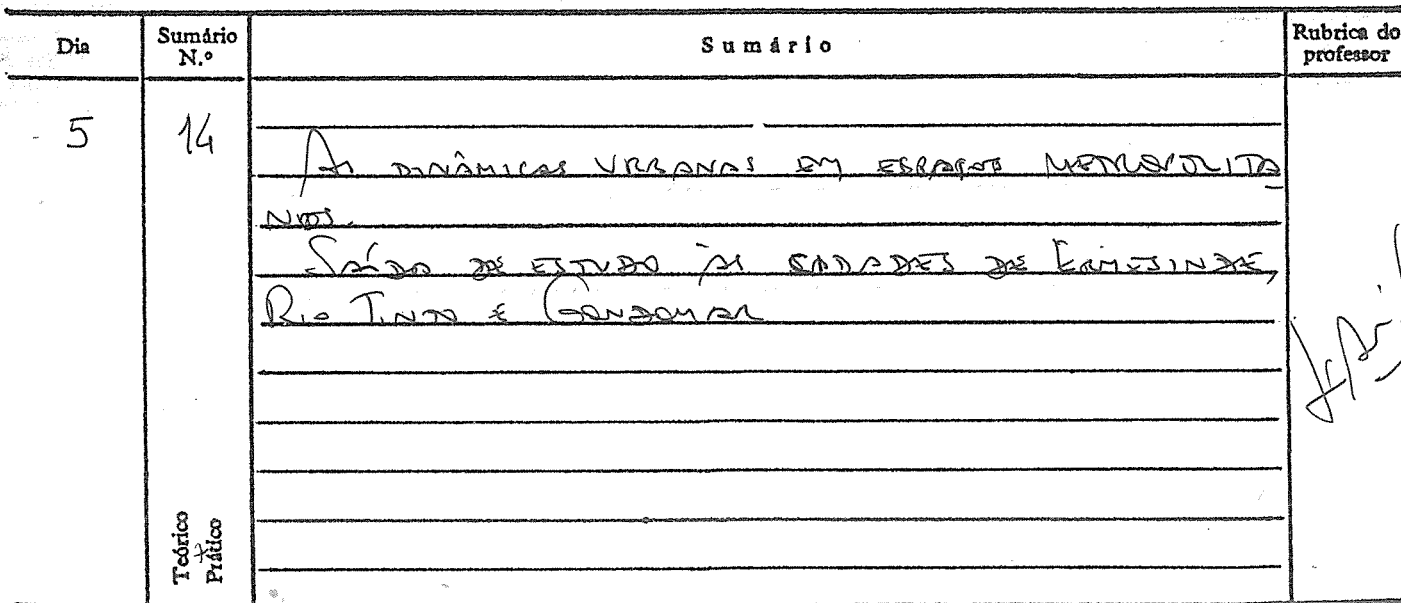 Dia Sumário N.º Sumário Rubrica do professor
5 14
As DINÂMICAS URBANAS EM ESPAÇOS METROPOLITA
NOS.
SAÍDA DE ESTUDO ÀS CIDADES DE ERMESINDE,
RIO TINTO E GONDOMAR
Teórico
+
Prático